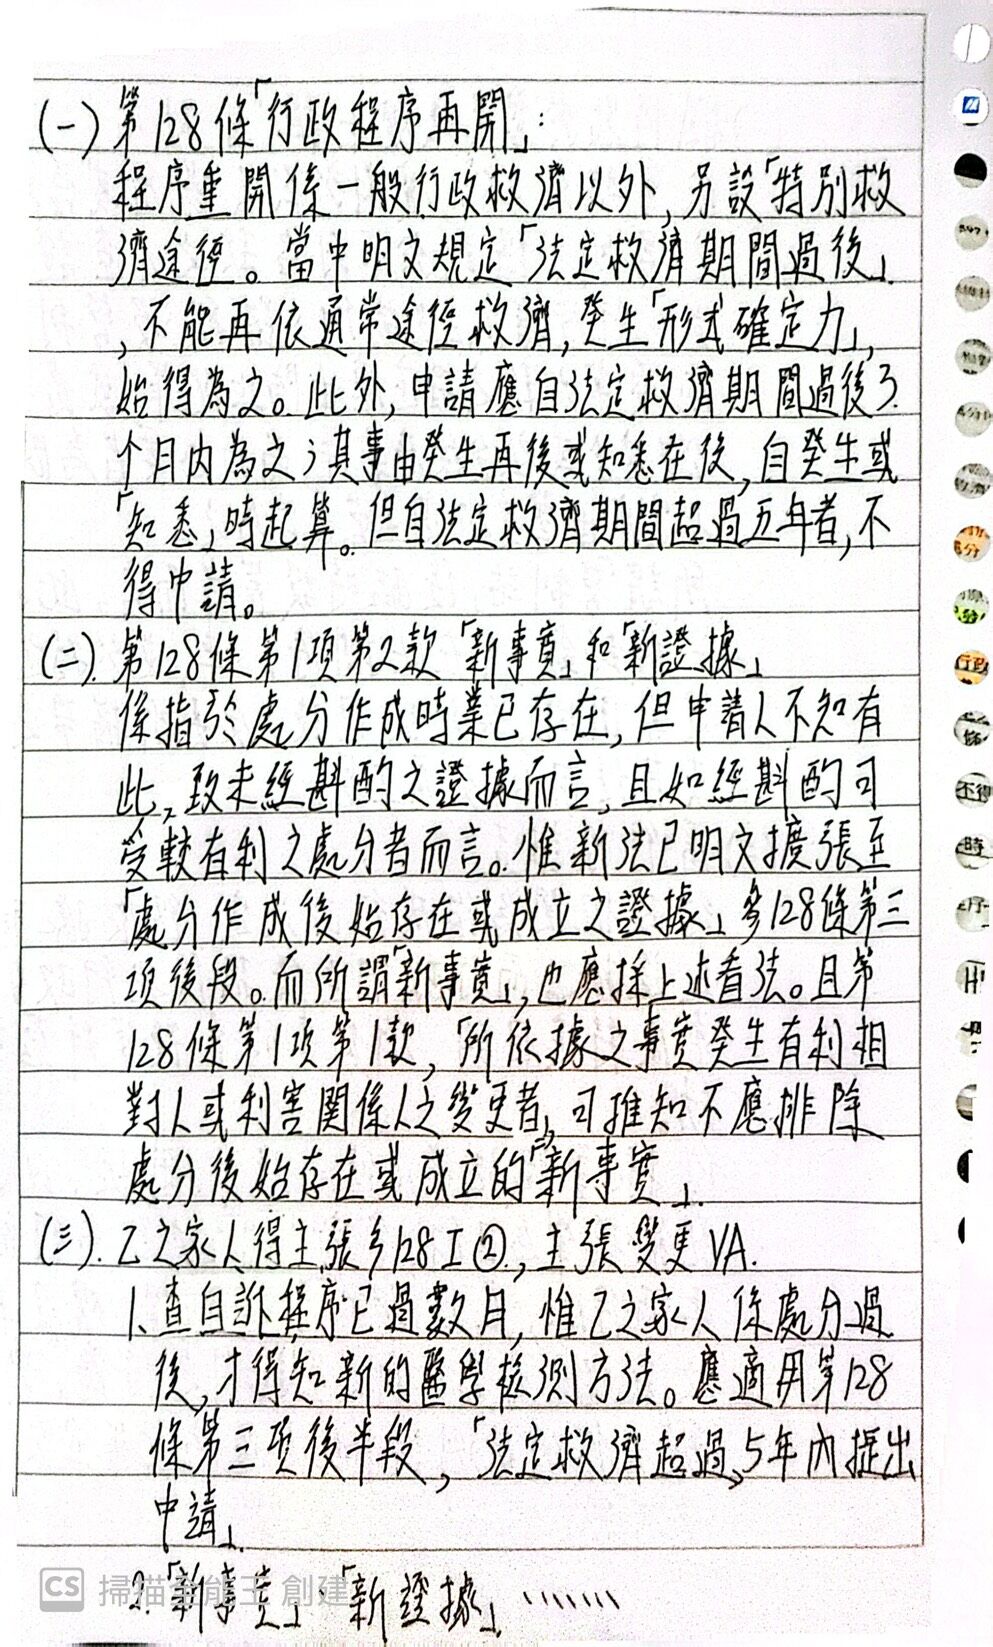 (一) 第128條「行政程序再開」:
程序重開係一般行政救濟以外,另設「特別救
濟途徑。當中明文規定「法定救濟期間過後」
,不能再依通常途徑救濟,發生「形式確定力」,
始得為之。此外,申請應自法定救濟期間過後3
個月內為之;其事由發生再後或知悉在後,自發生或
「知悉」時起算。但自法定救濟期間超過五年者,不
得申請。
(二). 第128條第1項第2款「新事實」和「新證據」
係指於處分作成時業已存在,但申請人不知有
此,致未經斟酌之證據而言,且如經斟酌可
受較有利之處分者而言。惟新法已明文擴張至
「處分作成後始存在或成立之證據」參128條第三
項後段。而所謂「新事實」,也應採上述看法。且第
128條第1項第1款,「所依據之事實發生有利相
對人或利害關係人之變更者」,可推知不應排除
處分後始存在或成立的「新事實」.
(三). 乙之家人得主張§128Ⅰ②,主張變更VA.
1. 查自訴程序已過數月,惟乙之家人係處分過
後,才得知新的醫學檢測方法。應適用第128
條第三項後半段,「法定救濟超過5年內提出
申請」.
2.「新事實」、「新證據」、、、、、、、
CS 掃描全能王 創建